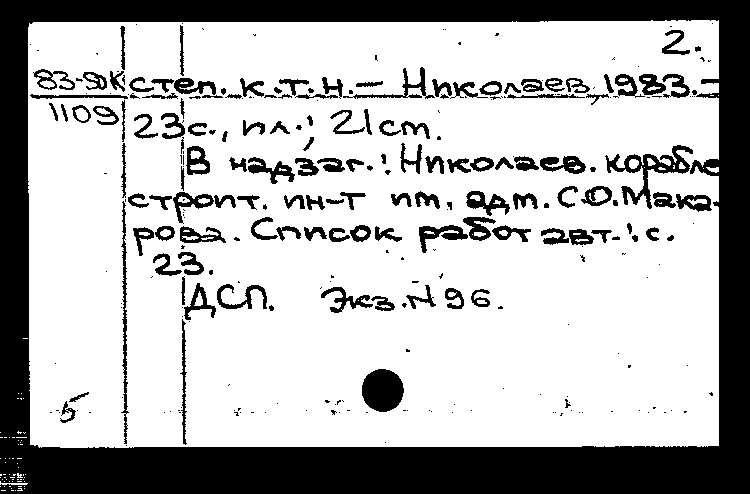 2.
83-ДК степ. к.т.н.— Николаев, 1983.—
1109
23с., ил.; 21 cm.
В надзаг.: Николаев. корабле
строит. ин-т им. адм. С.О.Мака-
рова. Список работ авт.: с.
23.
ДСП. Экз.N 96.
5